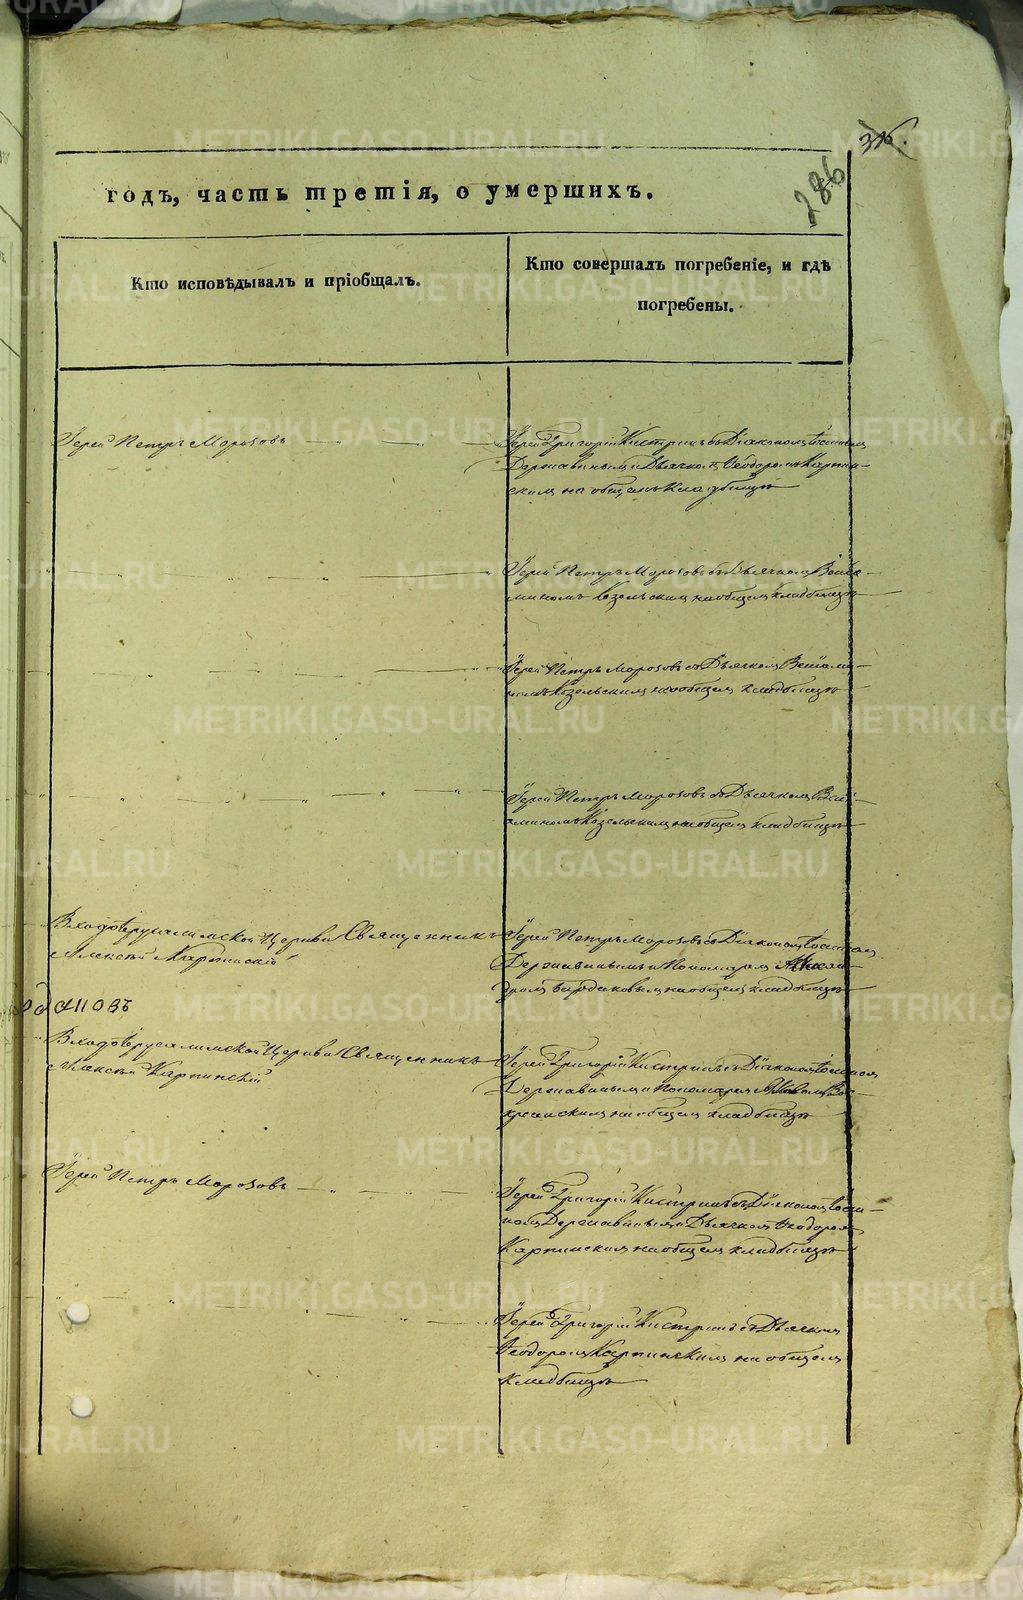 316.
286
годъ, часть третія, о умершихъ.
Кто исповѣдывалъ и пріобщалъ.
Кто совершалъ погребеніе, и гдѣ
погребены.
Іерей Петръ Морозовъ
Іерей Григорій Кистринъ съ Діакономъ
Державинымъ и Дьячкомъ Ѳеодоромъ Карпин-
скимъ на общемъ кладбищѣ
Іерей Петръ Морозовъ съ Дьячкомъ Веніа-
миномъ Козельскимъ на общемъ кладбищѣ
Іерей Петръ Морозовъ съ Дьячкомъ Веніами-
номъ Козельскимъ на общемъ кладбищѣ
Іерей Петръ Морозовъ съ Дьячкомъ Вені-
аминомъ Козельскимъ на общемъ кладбищѣ
Входоіерусалимской Церкви Священникъ
Алексѣй Карпинскій
Іерей Петръ Морозовъ съ Діакономъ
Державинымъ и Пономаремъ
на общемъ кладбищѣ
дановъ
Входоіерусалимской Церкви Священникъ
Алексѣй Карпинскій
Іерей Григорій Кистринъ съ Діакономъ
Державинымъ и Пономаремъ Вос-
кресенскимъ на общемъ кладбищѣ
Іерей Петръ Морозовъ
Іерей Григорій Кистринъ съ Діакономъ
Державинымъ и Дьячкомъ Ѳеодоромъ
Карпинскимъ на общемъ кладбищѣ
Іерей Григорій Кистринъ съ Дьячкомъ
Ѳеодоромъ Карпинскимъ на общемъ
кладбищѣ
METRIKI.GASO-URAL.RU